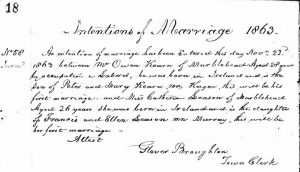 18
Intentions of Marriage 1863.
No 58 An intention of marriage has been Entered this day Nov. 22d
1863 between Mr Owen Keurn of Marblehead Aged 28 years
by occupation a Laborer, he was born in Ireland and is the
son of Peter and Mary Keurn his will be his
first marriage and Miss Catherine Deason of Marblehead
Aged 26 years she was born in Ireland and is the daughter
of Francis and Ellen Deason Murray, his will be
her first marriage
Attest
Glover Broughton
Town Clerk